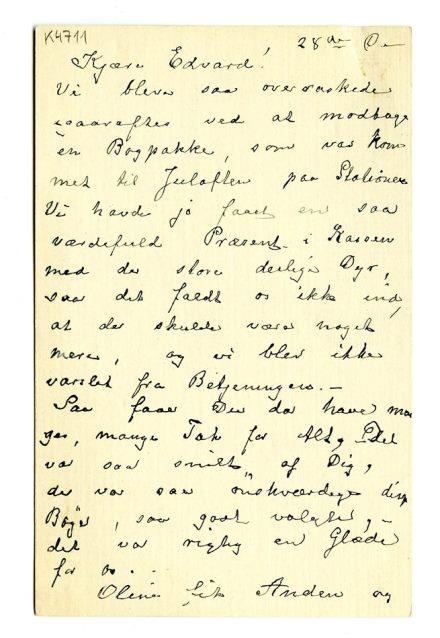 K4711
28de De
Kjære Edvard!
Vi bleve saa overraskede
iaaraftes ved at modtage
en Bogpakke, som var kom-
met til Juleaften paa Stationen
Vi havde jo faaet en saa
værdefuld Præsent i Kassen
med de store deilige Dyr,
saa det faldt os ikke ind,
at der skulde være noget
mere, og vi blev ikke
varslet fra Betjeningen. –
Saa faar Du da have man
ge, mange Tak for Alt, det
var saa snilt af Dig,
de var saa ønskværdige disse
Bøger, saa godt valgte, –
det var rigtig en Glæde
for os . .
Oline fik Anden og